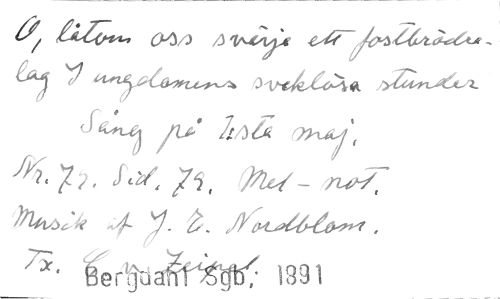 O, låtom oss svärja ett fostbrödra-
lag I ungdomens sveklösa stunder
Sång på 1sta maj.
Nr. 72. Sid. 79. Mel-not.
Musik af J. E. Nordblom.
Tx. C. v. Zeipel
Bergdahl Sgb, 1891